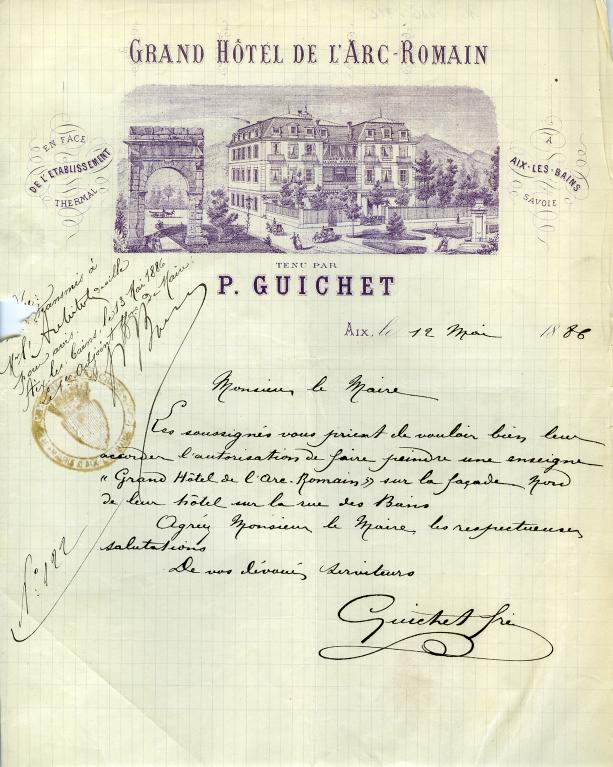 GRAND HÔTEL DE L'ARC-ROMAIN
EN FACE
DE L'ETABLISSEMENT
THERMAL
À
AIX-LES-BAINS
SAVOIE
TENU PAR
P. GUICHET
Aix, le 12 Mai 1886
transmis à
Mr l'Architecte de ville
pour avis.
Aix les Bains, le 13 Mai 1886
Le 1er Adjoint, ffons de Maire.
Monsieur le Maire
Les soussignés vous prient de vouloir bien leur
accorder l'autorisation de faire peindre une enseigne
"Grand Hôtel de l'Arc-Romain" sur la façade Nord
de leur hôtel sur la rue des Bains
Agréez Monsieur le Maire, les respectueuses
salutations
De vos dévoués serviteurs
Guichet
No: 122